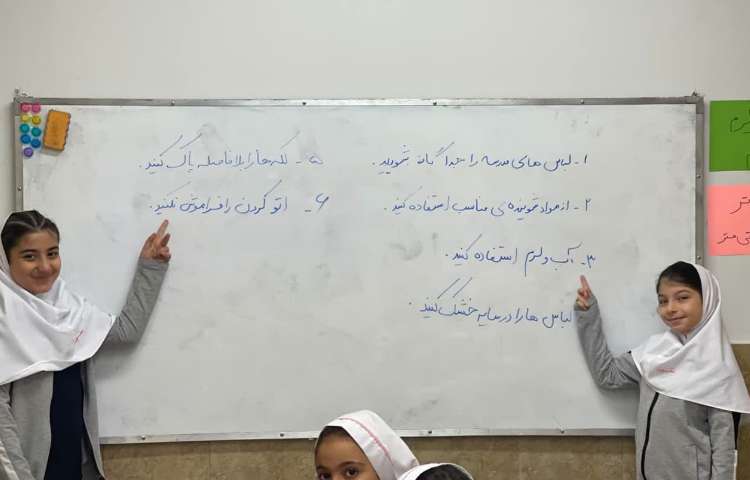 ۱- لباس های مدرسه را جداگانه بشویید.
۲- از مواد شوینده‌ی مناسب استفاده کنید.
۳- آب ولرم استفاده کنید.
لباس ها را در سایه خشک کنید.
۵- لکه ها را بلافاصله پاک کنید.
۶- اتو کردن را فراموش نکنید.
متر